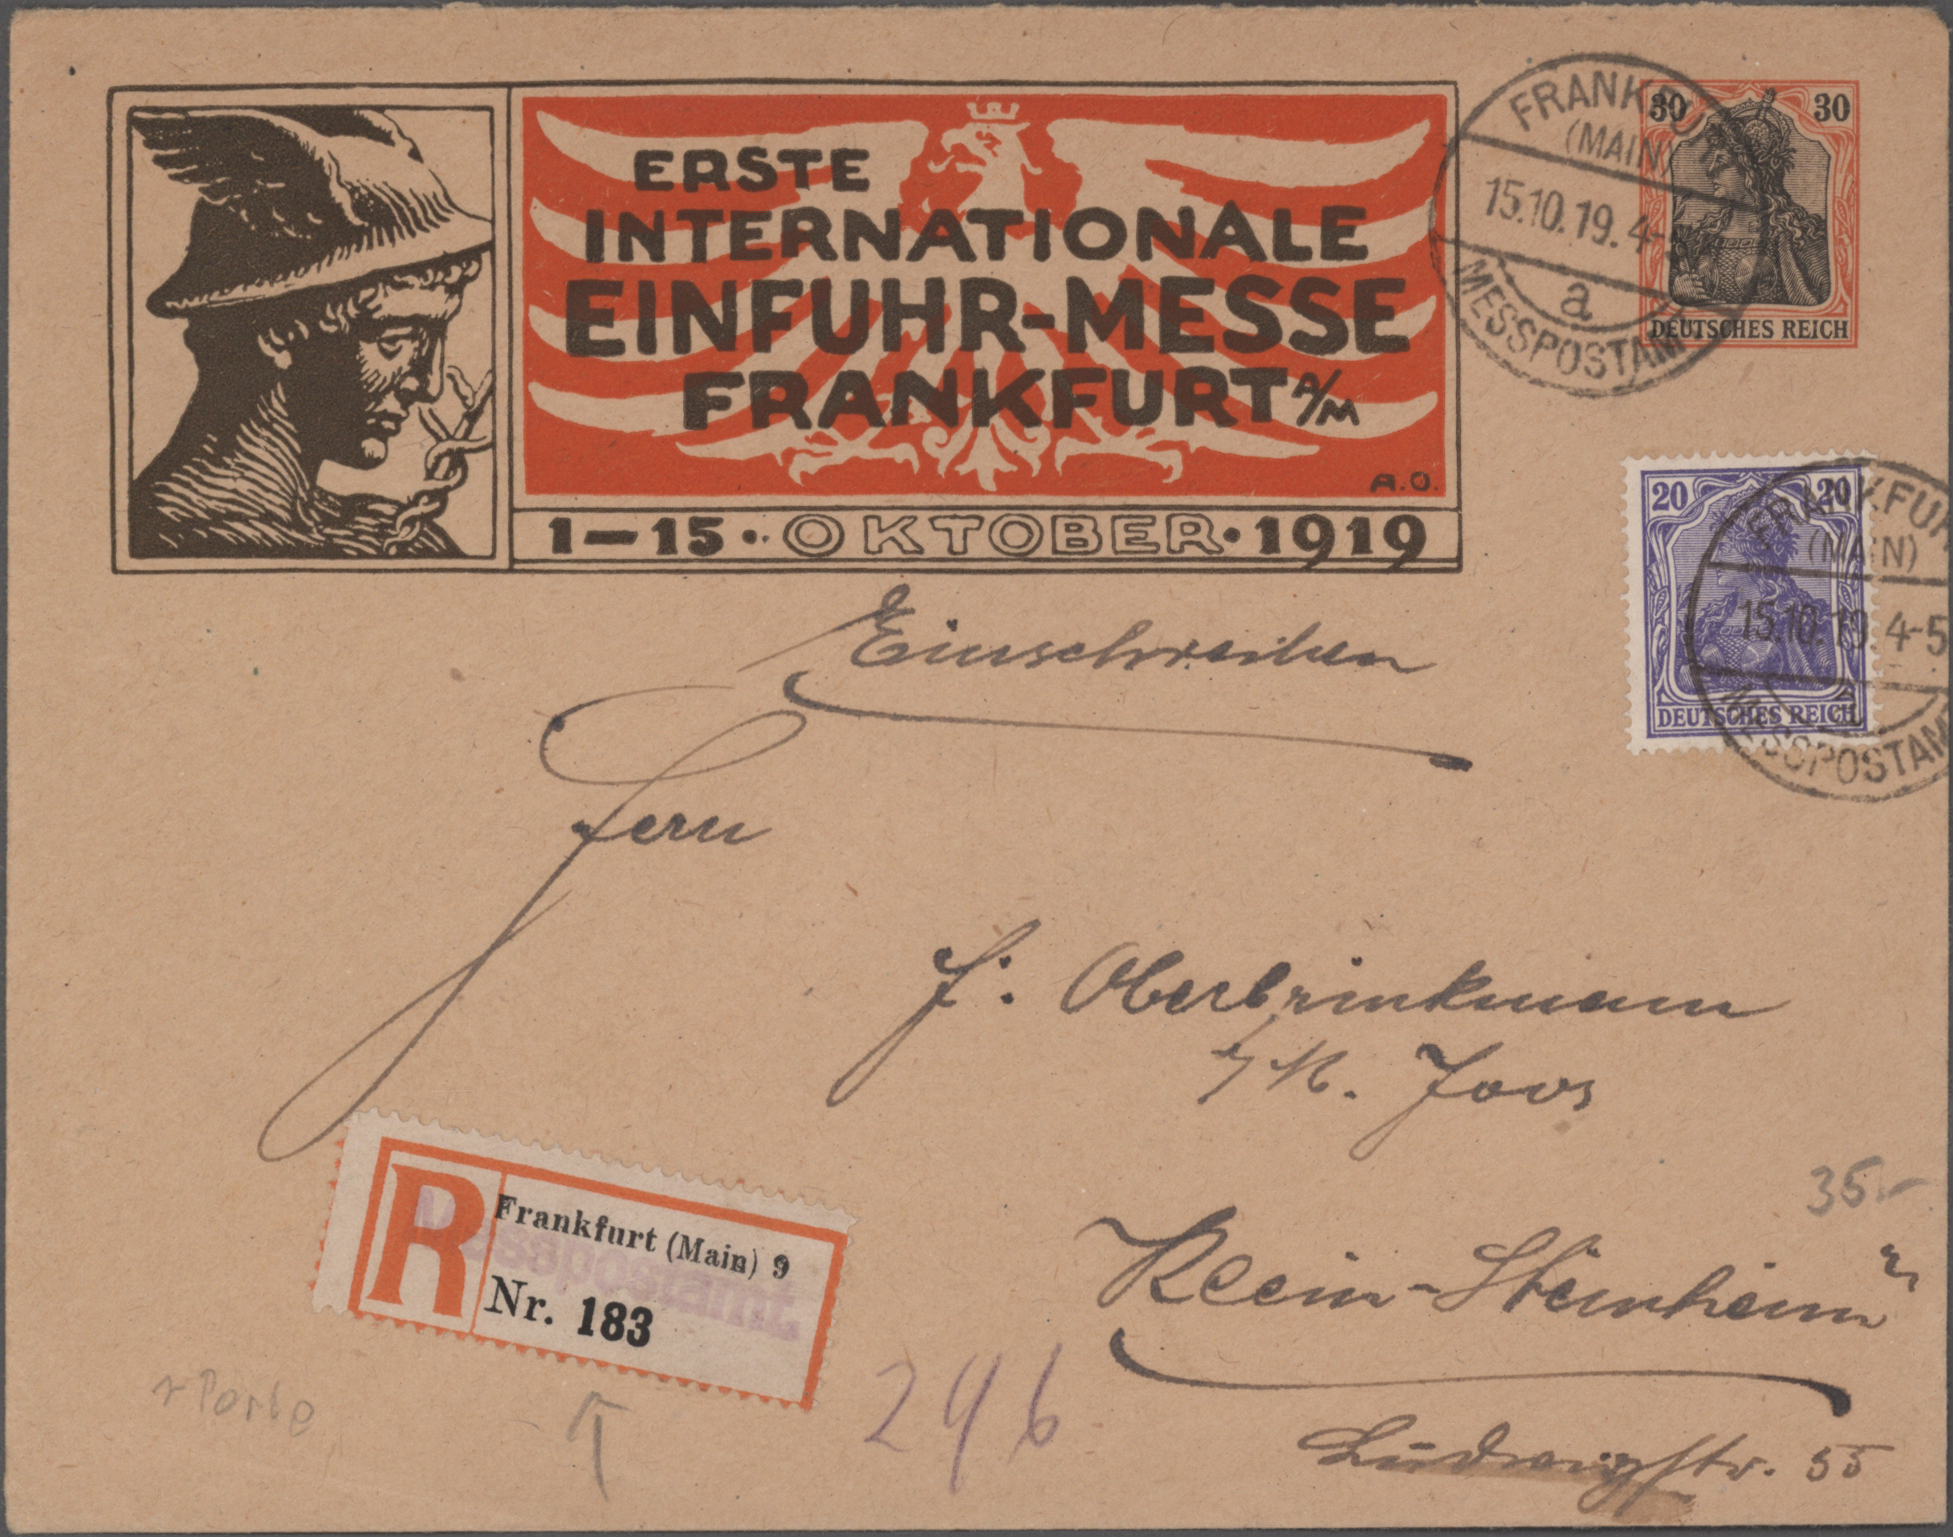 ERSTE
INTERNATIONALE
EINFUHR-MESSE
FRANKFURT A/M
A.O.
1–15 · OKTOBER · 1919
30 30
DEUTSCHES REICH
FRANKFU
(MAIN)
15.10.19. 4-
a
MESSPOSTAM
20 20
DEUTSCHES REICH
FRANKFUR
(MAIN)
15.10.19. 4-5
MESSPOSTAM
Einschreiben
Herrn
J. Oberbrinkmann
Joos
35.-
Klein-Steinheim
R
Frankfurt (Main) 9
Messpostamt
Nr. 183
296
Ludwigstr. 55